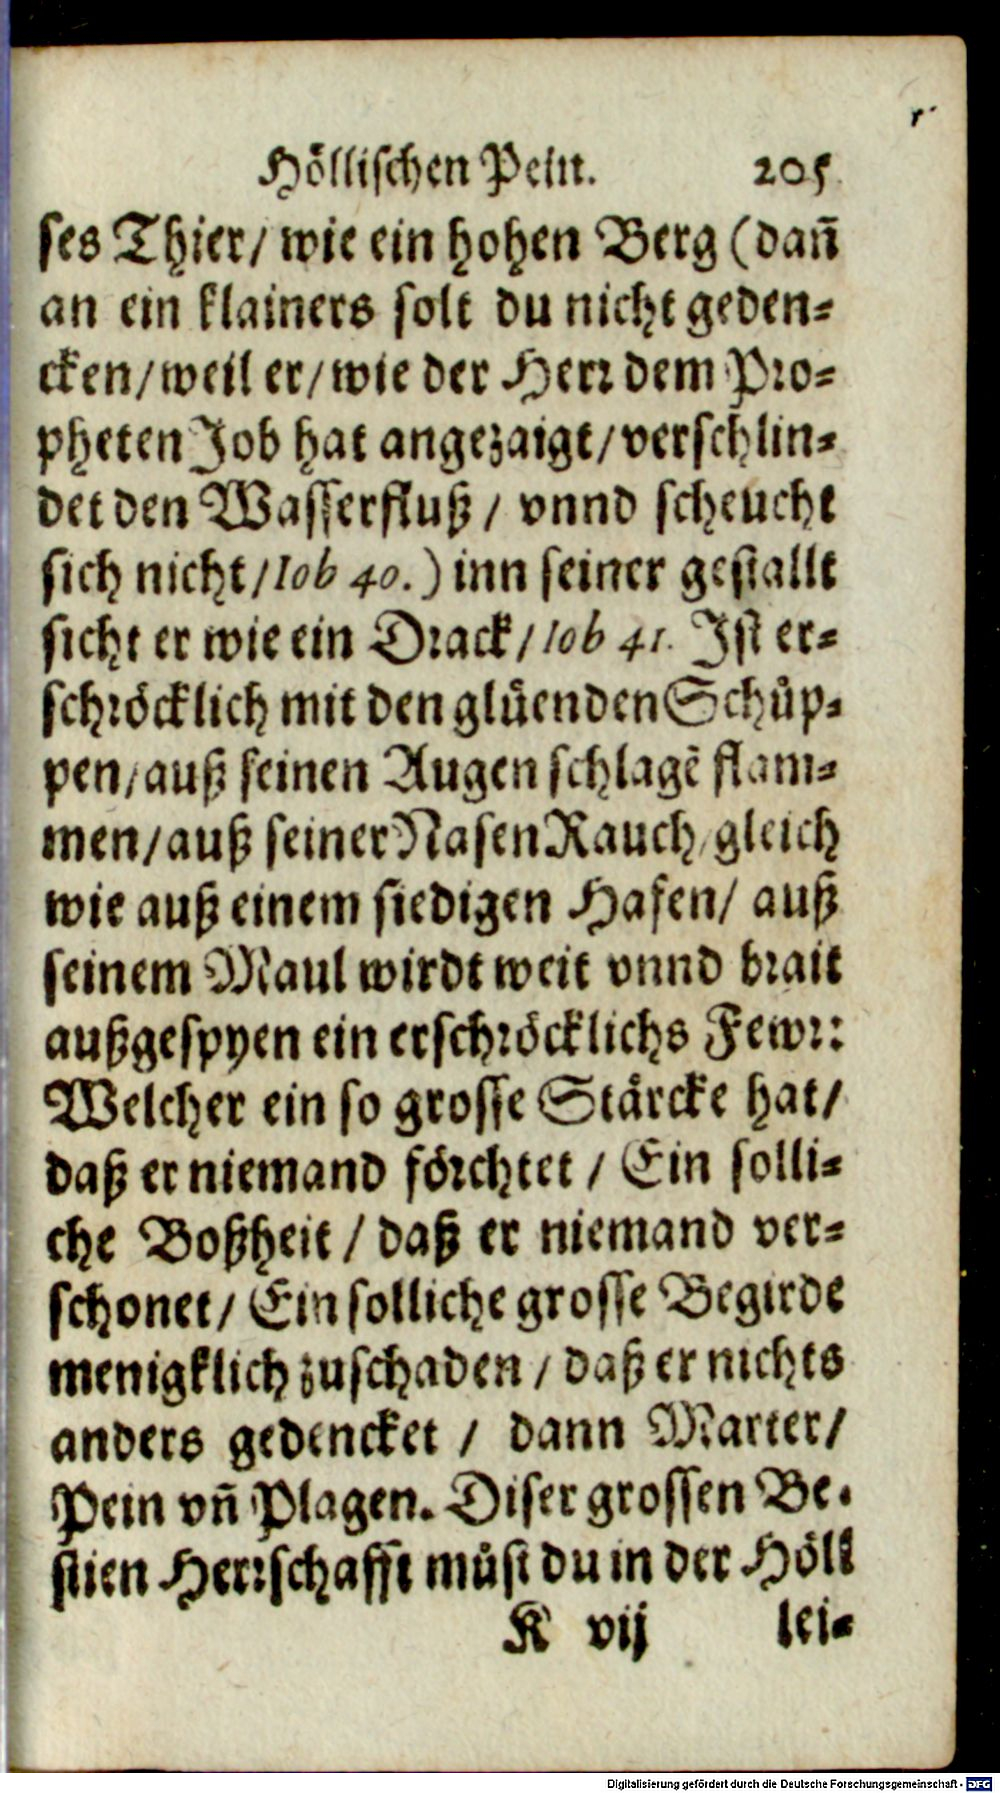 Höllischen Pein. 205
ses Thier/ wie ein hohen Berg (dañ
an ein klainers solt du nicht geden-
cken/weil er/wie der Herr dem Pro-
pheten Job hat angezaigt/verschlin-
det den Wasserfluß/ vnnd scheucht
sich nicht/Iob 40.) inn seiner gestallt
sicht er wie ein Drack/Iob 41. Ist er-
schröcklich mit den glüenden Schüp-
pen/auß seinen Augen schlagē flam-
men/auß seiner Nasen Rauch/gleich
wie auß einem siedigen Hafen/ auß
seinem Maul wirdt weit vnnd brait
außgespyen ein erschröcklichs Fewr:
Welcher ein so grosse Stärcke hat/
daß er niemand förchtet/ Ein solli-
che Boßheit/ daß er niemand ver-
schonet/ Ein solliche grosse Begirde
menigklich zuschaden/ daß er nichts
anders gedencket/ dann Marter/
Pein vñ Plagen. Diser grossen Be-
stien Herrschafft müst du in der Höll
K vij lei-
Digitalisierung gefördert durch die Deutsche Forschungsgemeinschaft - DFG